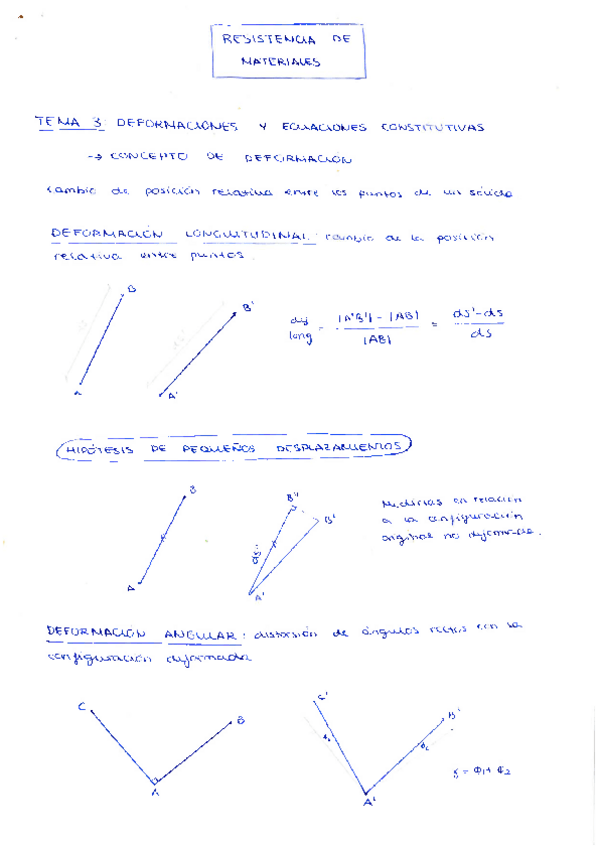 RESISTENCIA DE
MATERIALES
TEMA 3: DEFORMACIONES Y ECUACIONES CONSTITUTIVAS
→ CONCEPTO DE DEFORMACIÓN
cambio de posición relativa entre los puntos de un sólido
DEFORMACIÓN LONGITUDINAL: cambio de la posición
relativa entre puntos.
B
A
B'
A'
def long = |A'B'| - |AB| / |AB| = ds' - ds / ds
HIPÓTESIS DE PEQUEÑOS DESPLAZAMIENTOS
B
A
B''
B'
ds''
A'
Medirlas en relación
a la configuración
original no deformada.
DEFORMACIÓN ANGULAR: distorsión de ángulos rectos con la
configuración deformada
C
B
A
C'
B'
A'
γ = φ1 + φ2